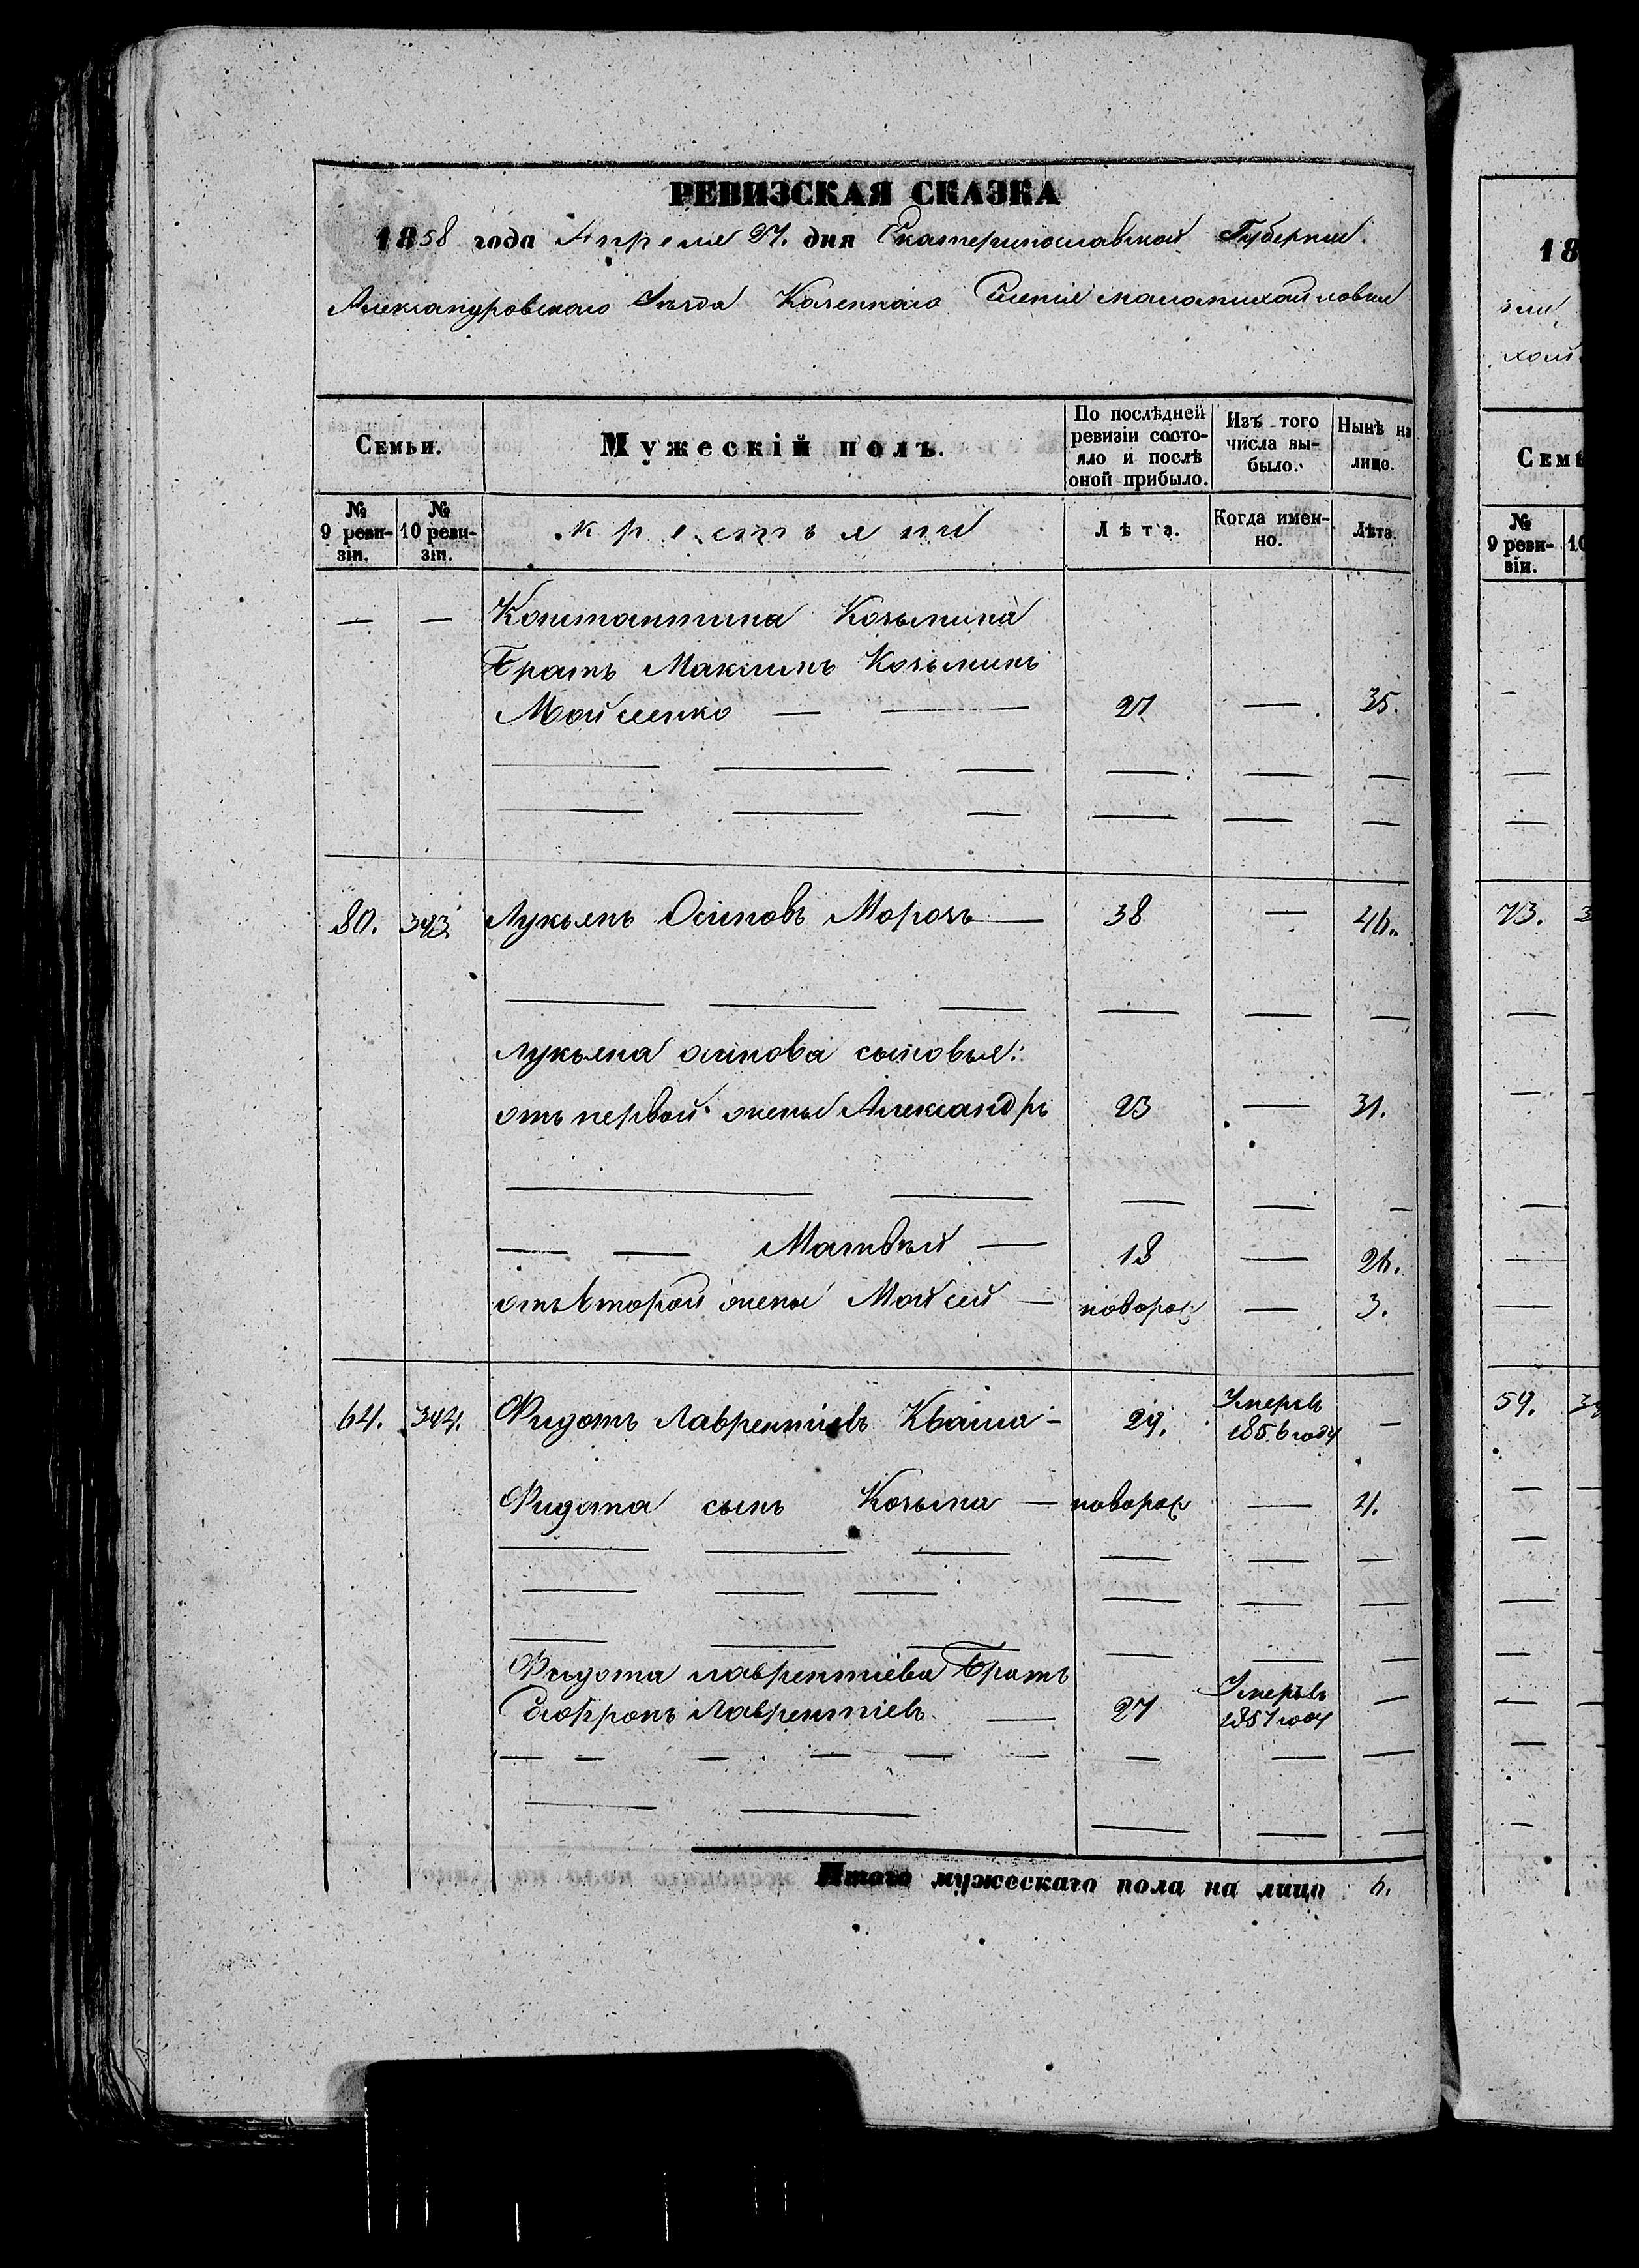 РЕВИЗСКАЯ СКАЗКА
1858 года Апреля 27. дня Екатеринославской Губернии
Александровскаго Уѣзда Казеннаго Селенія маломихайловки
Семьи.
Мужескій полъ.
По послѣдней ревизіи состо-
яло и послѣ
оной прибыло.
Изъ того
числа вы-
было.
Нынѣ на
лицо.
№
9 реви-
зіи.
№
10 реви-
зіи.
крестьяни
Лѣта.
Когда имен-
но.
Лѣта.
— — Константина Козьмина
Братъ Максимъ Козьминъ
Мойсенко — — 27 — 35.
80. 343 Лукьянъ Осиповъ Морозъ — 38 — 46.
Лукьяна осипова сыновья:
отъ первой жены Александръ 23 — 31.
— — Матвѣй — 18 — 26.
отъ второй жены Мойсей — новорож — 3.
64. 344. Фидотъ Лаврентіевъ Кваша — 29. Умеръ
1856 году —
Фидота сынъ Козьма — новорож — 4.
Фидота лаврентіева Братъ
Софронъ Лаврентіевъ — 27 Умеръ
1857 году —
Итого мужескаго пола на лицо 6.
18
зіи
хай
Семь
№
9 реви-
зіи.
10
73. 3
59. 34